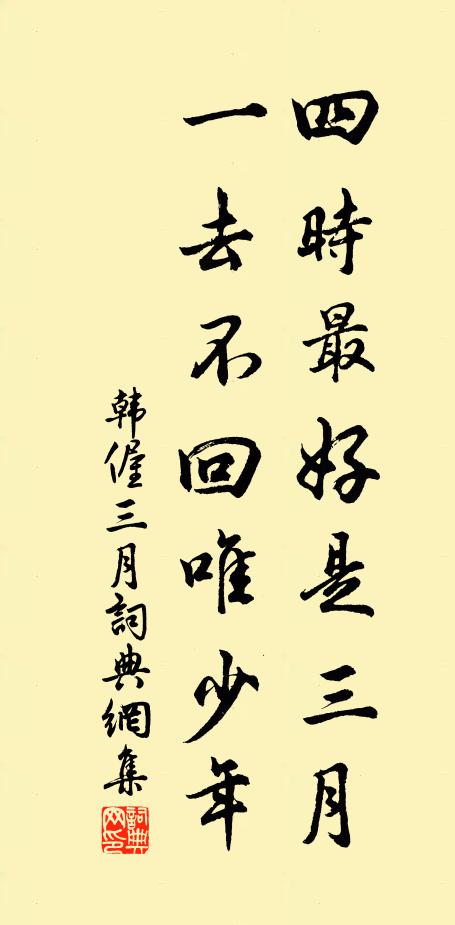 四時最好是三月
一去不回唯少年
韓偓三月詞典網集
詞典網印